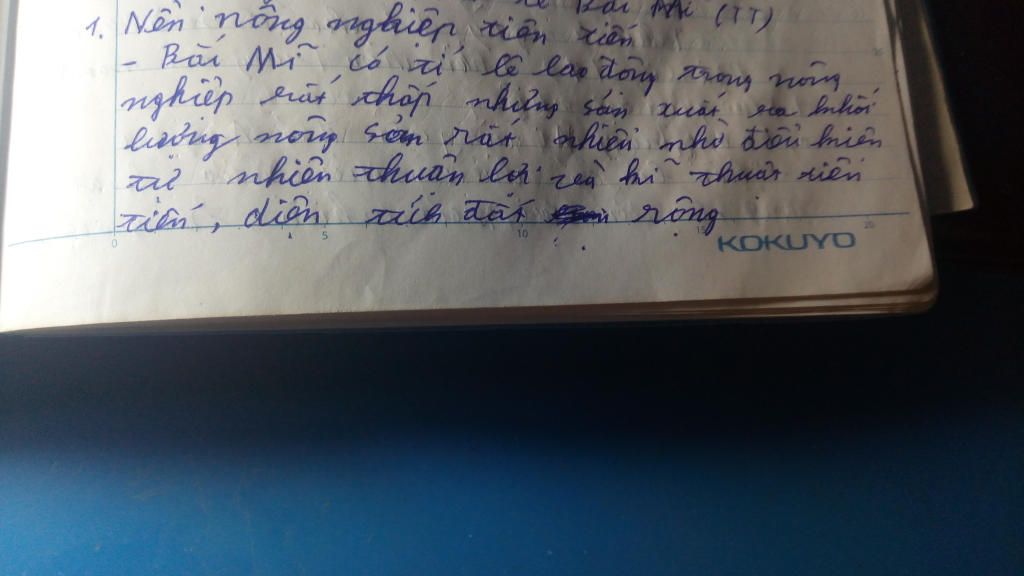 tế Bắc Mĩ (TT)
1. Nền nông nghiệp tiên tiến
- Bắc Mĩ có tỉ lệ lao động trong nông
nghiệp rất thấp nhưng sản xuất ra khối
lượng nông sản rất nhiều nhờ điều kiện
tự nhiên thuận lợi và kĩ thuật tiên
tiến, diện tích đất rộng
0 5 10 15 20
KOKUYO